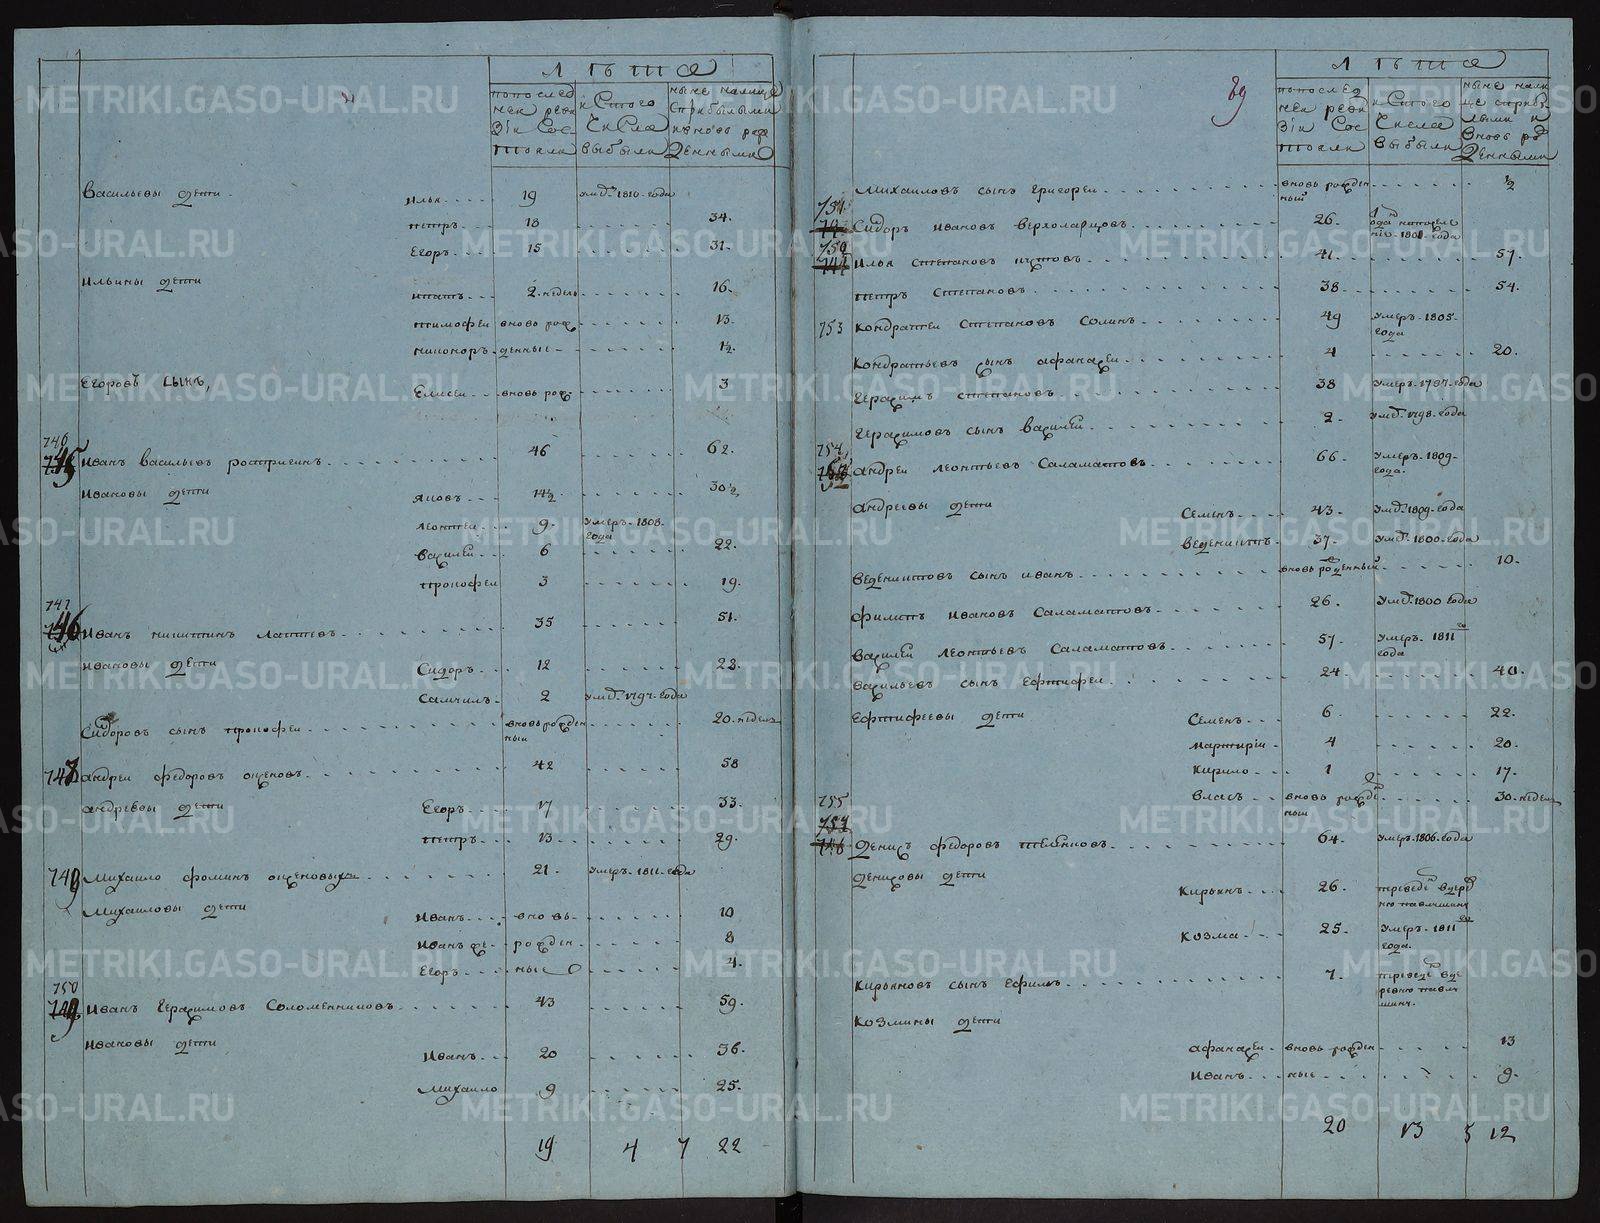 лѣта
попослед
ней реви
зіи сос
тояли
ис того
числа
выбыли
ныне налице
сприбылыми
и вновь рож
денными
Васильевы дети Илья 19 умр. 1810 года
петръ 18 34.
Егоръ 15 31.
Ильины дети ипатъ 2. недель 16.
тимофеи вновь рож 13.
никоноръ денные 1½
Егоровъ сынъ Елисеи вновь рож 3
746
745 Иванъ Васильевъ ростригинъ 46 62.
Ивановы дети яковъ 14½ 30½
леонтеи 9. умеръ 1808
года
Василеи 6 22.
прокофеи 3 19.
747
746 Иванъ никитинъ лаптевъ 35 51.
ивановы дети Сидоръ 12 28.
Самоилъ 2 умр. 1797 года
Сидоровъ сынъ прокофеи вновь рожден 20. недель
ныи
748 Андреи федоровъ ощеповъ 42 58
Андреевы дети Егоръ 17 33.
петръ 13 29.
749 Михаило фоминъ ощеповыхъ 21. умеръ 1811 года
Михаиловы дети Иванъ вновь 10
Иванъ же рожден 8
Егоръ ные 4.
750
749 Иванъ Герасимовъ Соломенниковъ 43 59.
Ивановы дети Иванъ 20 36.
Михаило 9 25.
19 4 7 22
89
лѣта
попослед
ней реви
зіи сос
тояли
ис того
числа
выбыли
ныне нали
це сприбы
лыми и
вновь ро
денными
Михаиловъ сынъ Григореи вновь рожден ½
ныи
751
Сидоръ Ивановъ верхоланцовъ 26. 1801 года
752
Илья степановъ шутовъ 41 57.
петръ степановъ 38 54.
753 Кондратеи степановъ Солинъ 49 умеръ 1805
года
Кондратьевъ сынъ афанасеи 4 20.
Герасимъ степановъ 38 умеръ 1797 года
Герасимовъ сынъ Василеи 2. умр. 1798 года
754
Андреи леонтьевъ Саламатовъ 66 умеръ 1809
года.
андреевы дети Семенъ 43 умр. 1809 года
веденихтъ 37. умр. 1800 года
веденихтовъ сынъ иванъ вновь рожденныи 10.
филипъ Ивановъ Саламатовъ 26. умр. 1800 года
Василеи леонтьевъ Саламатовъ 57. умеръ 1811го
года
Васильевъ сынъ Ефтифеи 24 40.
Ефтифеевы дети Семенъ 6 22.
мартиріи 4 20.
Кирило 1 17.
Власъ вновь рожде 30. недель
ныи
755
Денисъ федоровъ теленковъ 64. умеръ 1806 года
Денисовы дети Кирьянъ 26. переведен вдерев
ню
Козма 25. умеръ 1811го
года.
Кирьяновъ сынъ Ефимъ 7. переведен вде
ревню
Козмины дети
афанасеи вновь рожден 13
Иванъ ные 9.
20 13 5 12
METRIKI.GASO-URAL.RU